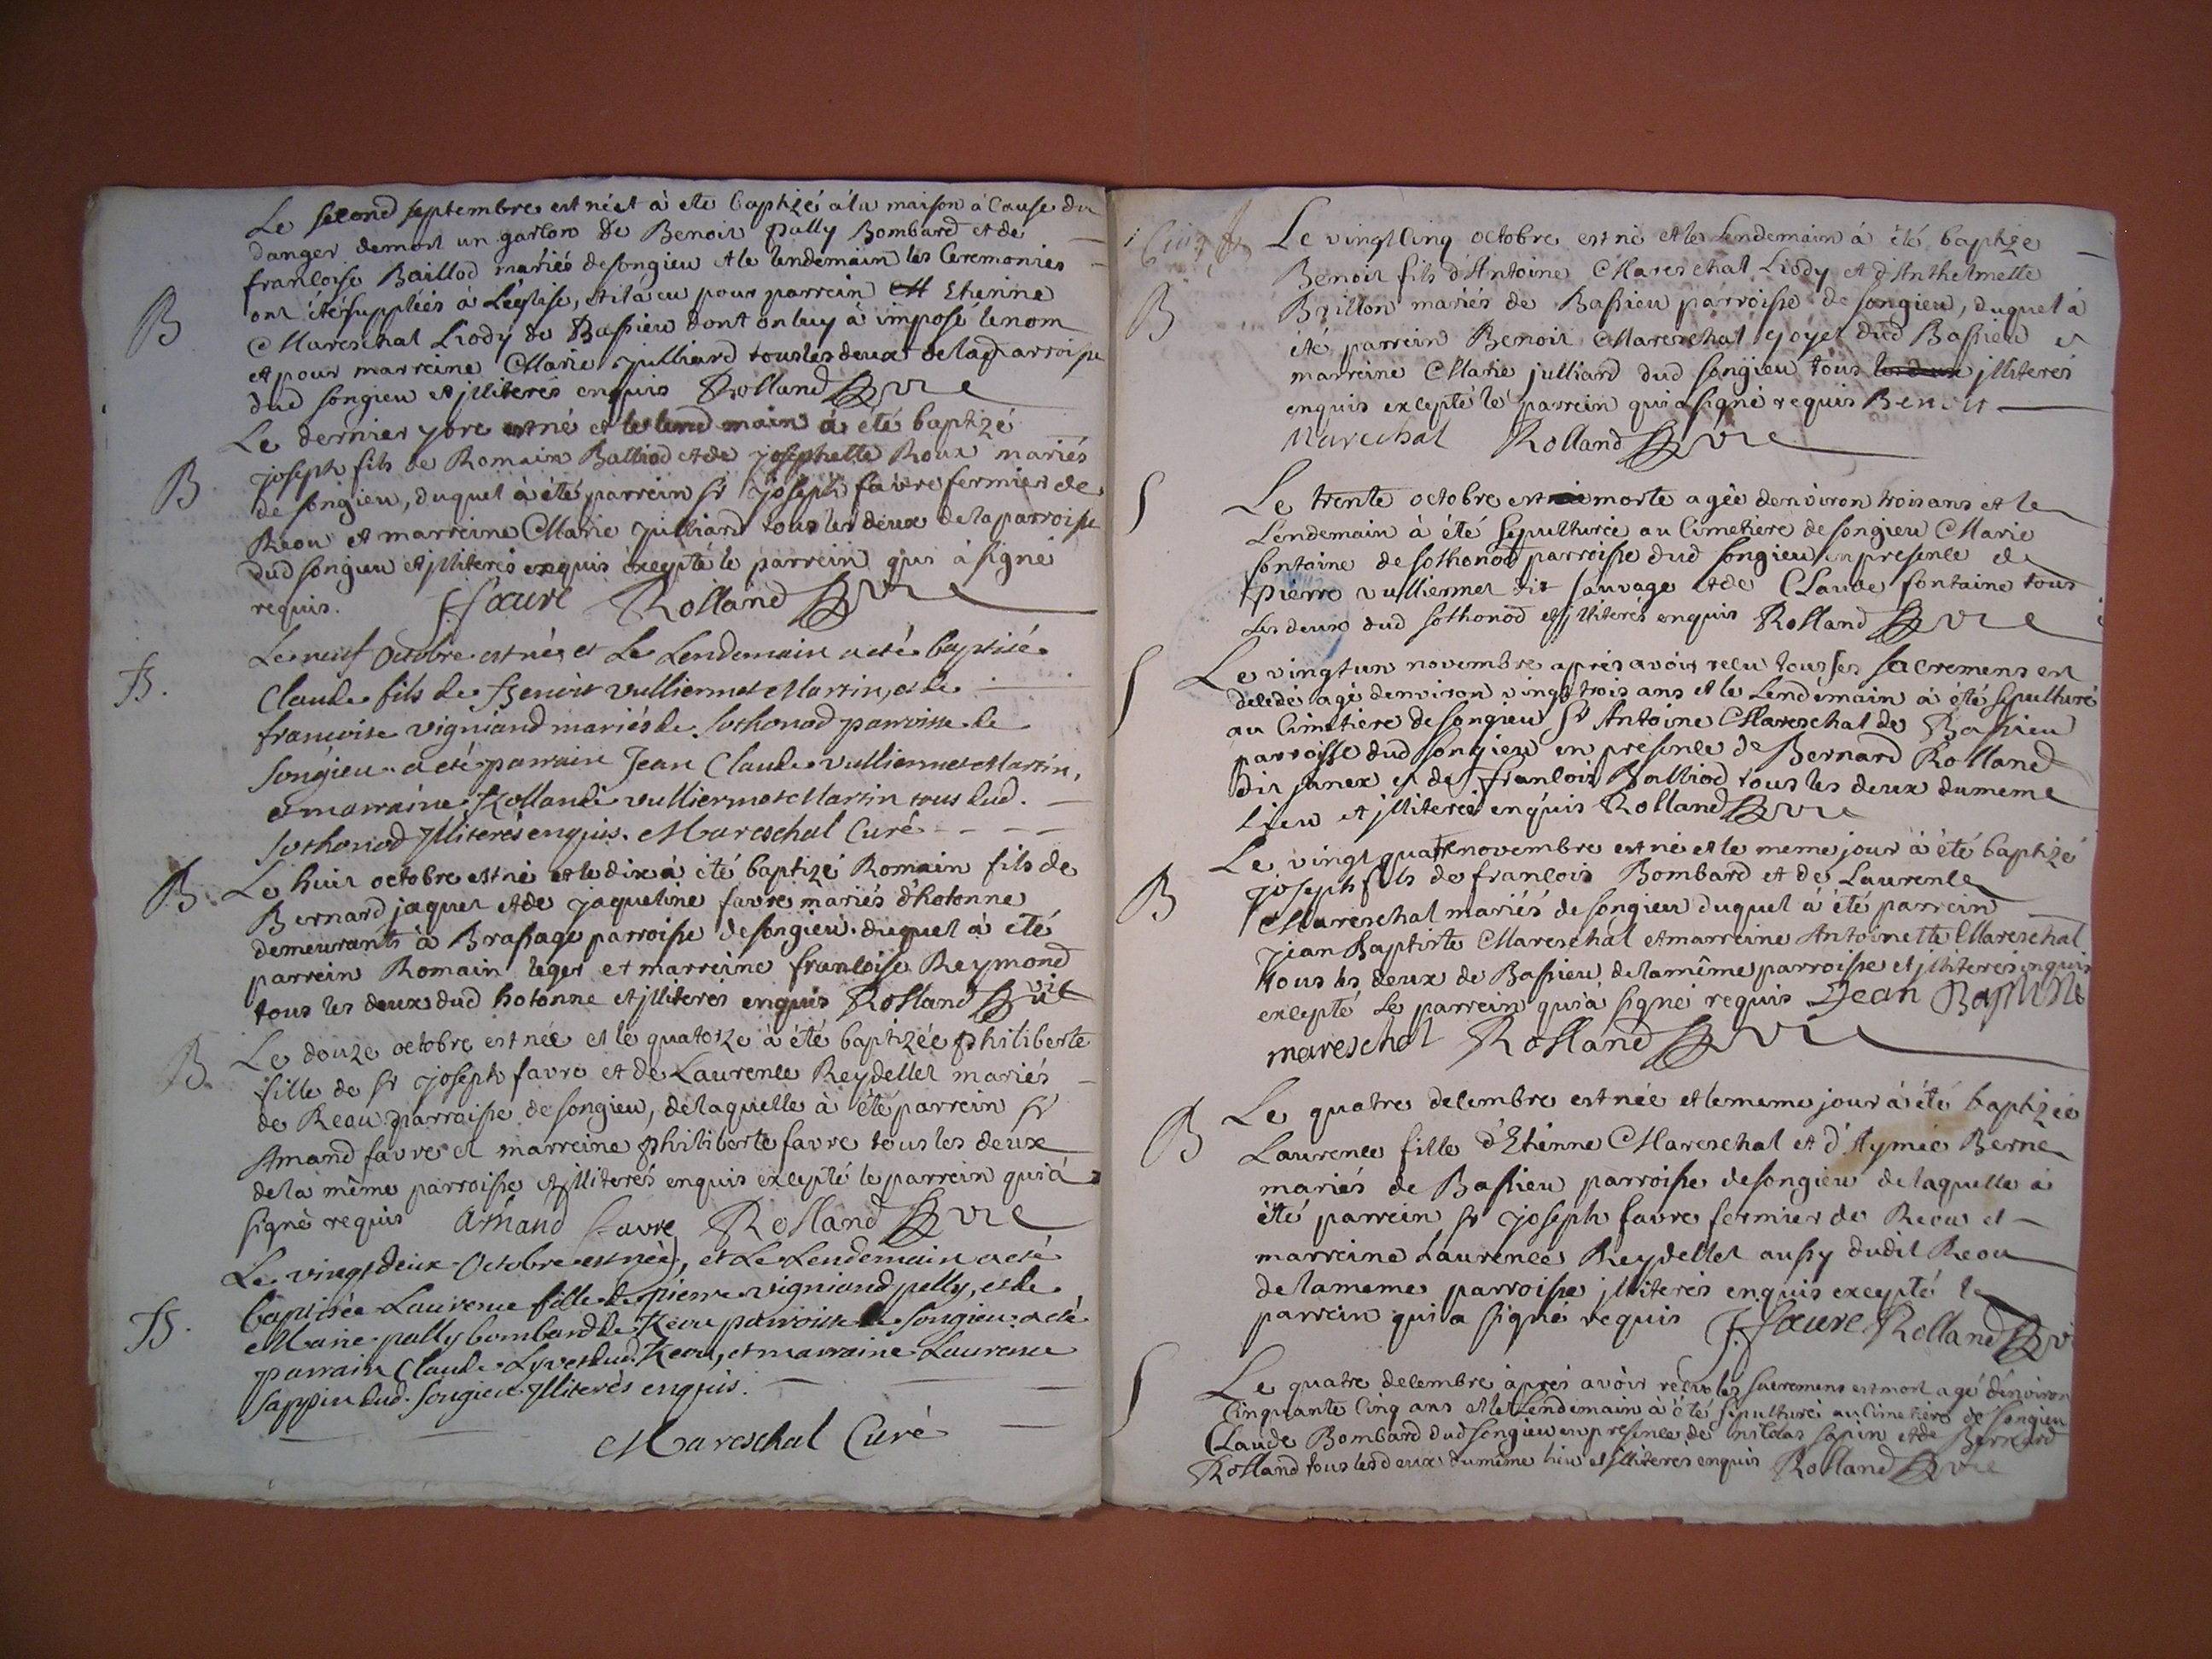 Le second septembre est né et à ete baptizé à la maison à Cause du
danger demort un garson de Benoit pally Bombard et de
francoise Baillod mariés de songieu et le lendemain les Ceremonies
B
ont été supplées à L'eglise, et il à eu pour parrein Etienne
Mareschal Liody de Bassieu dont on luy à imposé le nom
et pour marreine Marie julliard tous les deux de la parroisse
dud songieu et jlliterés enquis Rolland vre
Le dernier 7bre est né et le lendemain à été baptizé
B
joseph fils de Romain Balliod et de josephette Roux mariés
de songieu, duquel à été parrein sr joseph favre fermier de
Reou et marreine Marie julliard tous les deux de la parroisse
dud songieu et jlliterés enquis excepté le parrein qui à signé
requis. J faure Rolland vre
Le neuf Octobre est né, et Le Lendemain a eté baptisé
B.
Claude fils de Benoit vulliermet Martin, et de
francoise vigniand mariés de Sothonod parroisse de
Songieu a eté parrain Jean Claude vulliermet Martin,
et marraine Rollande vulliermet Martin tous dud.
Sothonod Jlliterés enquis. Mareschal Curé
B.
Le huit octobre est né et le dix à été baptizé Romain fils de
Bernard jaquet et de jaqueline favre mariés d'hotonne
demeurants à Brassage parroisse de songieu. duquel à été
parrein Romain leger et marreine francoise Reymond
tous les deux dud hotonne et jlliterés enquis Rolland vic
B.
Le douze octobre est née et le quatorze à été baptizée philiberte
fille de sr joseph favre et de Laurence Reydellet mariés
de Reou parroisse de songieu, de laquelle à été parrein sr
Amand favre et marreine philiberte favre tous les deux
de la même parroisse et jlliterés enquis excepté le parrein qui à
signé requis Amand favre Rolland vre
Le vingtdeux Octobre est née, et Le Lendemain a eté
baptisée Laurence fille de pierre vigniand pelly, et de
B.
Marie pally bombard de Reou parroisse de songieu a eté
parrain Claude Lyvet dud. Reou, et marraine Laurence
sappin dud. songieu Jlliterés enquis.
Mareschal Curé
Le vingt Cinq octobre est né et le Lendemain à été baptizé
Benoit fils d'Antoine Mareschal Liody et d'Anthelmette
B
Brillon mariés de Bassieu parroisse de songieu, duquel à
été parrein Benoit Mareschal goyet dud Bassieu et
marreine Marie julliard dud songieu tous les deux jlliterés
enquis excepté le parrein qui a signé requis Benoit
Marechal Rolland vre
S
Le trente octobre est morte agée denviron trois ans et le
Lendemain à été sepulturée au Cimetiere de songieu Marie
fontaine de sothonod parroisse dud songieu en presence de
pierre vulliermet dit sauvage et de Claude fontaine tous
Les deux dud sothonod et jlliterés enquis Rolland vre
S
Le vingt un novembre après avoir recu tous ses sacremens est
décédé agé denviron vingt trois ans et le Lendemain à été sepulturé
au Cimetiere de songieu Sr Antoine Mareschal de Bassieu
parroisse dud songieu en presence de Bernard Rolland
dit janex et de francois Balliod tous les deux du meme
lieu et jlliterés enquis Rolland vre
Le vingt quatre novembre est né et le meme jour à été baptizé
B
joseph fils de francois Bombard et de Laurence
Mareschal mariés de songieu duquel à été parrein
jean Baptiste Mareschal et marreine Antoinette Mareschal
tous les deux de Bassieu de la même parroisse et jlliterés enquis
excepté Le parrein qui à signé requis Jean Baptiste
mareschal Rolland vre
B
Le quatre decembre est née et le meme jour à été baptizée
Laurence fille d'Etienne Mareschal et d'Aymée Berne
mariés de Bassieu parroisse de songieu de laquelle à
été parrein sr joseph favre fermier de Reou et
marreine Laurence Reydellet aussy dudit Reou
de la meme parroisse jlliterés enquis excepté le
parrein qui a signé requis J. faure Rolland
S
Le quatre decembre après avoir recu les sacremens est mort agé d'environ
Cinquante Cinq ans et le Lendemain à été sepulturé au Cimetiere de songieu
Claude Bombard dud songieu en presence de nicolas sapin et de Bernard
Rolland tous les deux du même lieu et jlliterés enquis Rolland vre